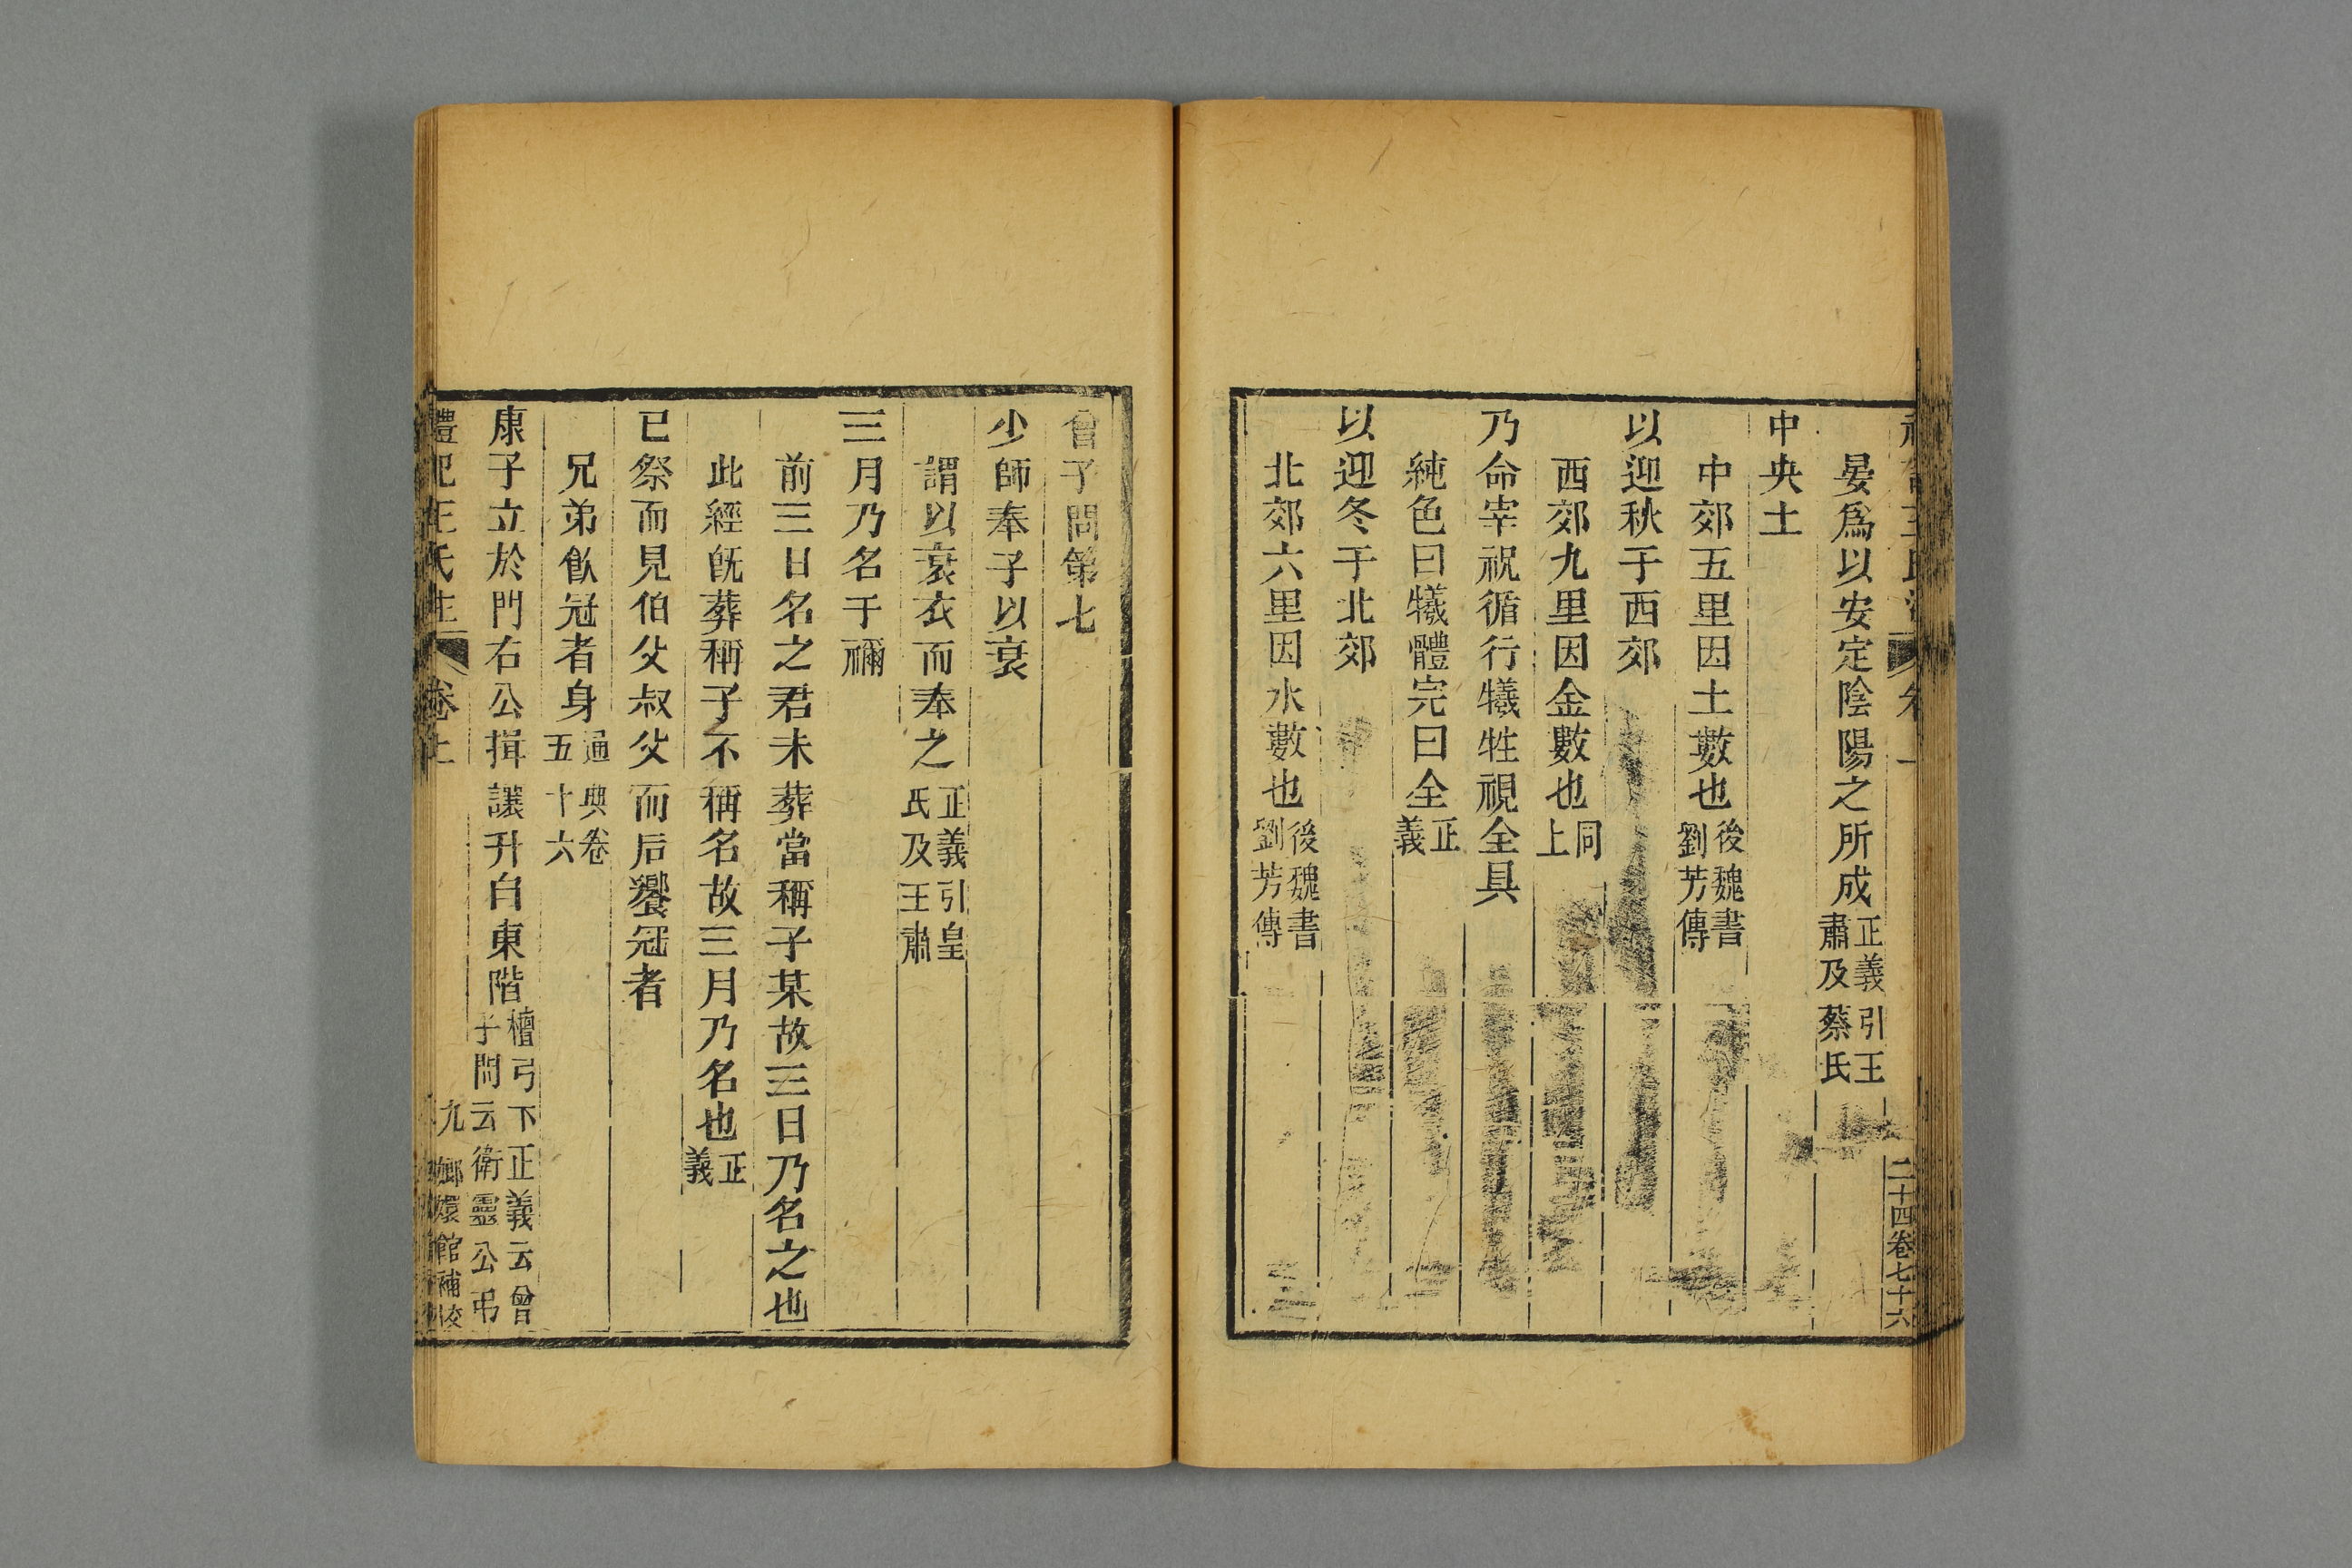 二十四卷七十六
晏爲以安定陰陽之所成正義引王肅及蔡氏
中央土
中郊五里因土數也後魏書劉芳傳
以迎秋于西郊
西郊九里因金數也同上
乃命宰祝循行犧牲視全具
純色曰犧體完曰全正義
以迎冬于北郊
北郊六里因水數也後魏書劉芳傳
曾子問第七
少師奉子以衰
謂以衰衣而奉之正義引皇氏及王肅
三月乃名于禰
前三日名之君未葬當稱子某故三日乃名之也
此經旣葬稱子不稱名故三月乃名也正義
已祭而見伯父叔父而后饗冠者
兄弟飮冠者身通典卷五十六
康子立於門右公揖讓升自東階檀弓下正義云曾子問云衛靈公弔
禮記王氏注 卷上 九 嫏嬛館補校